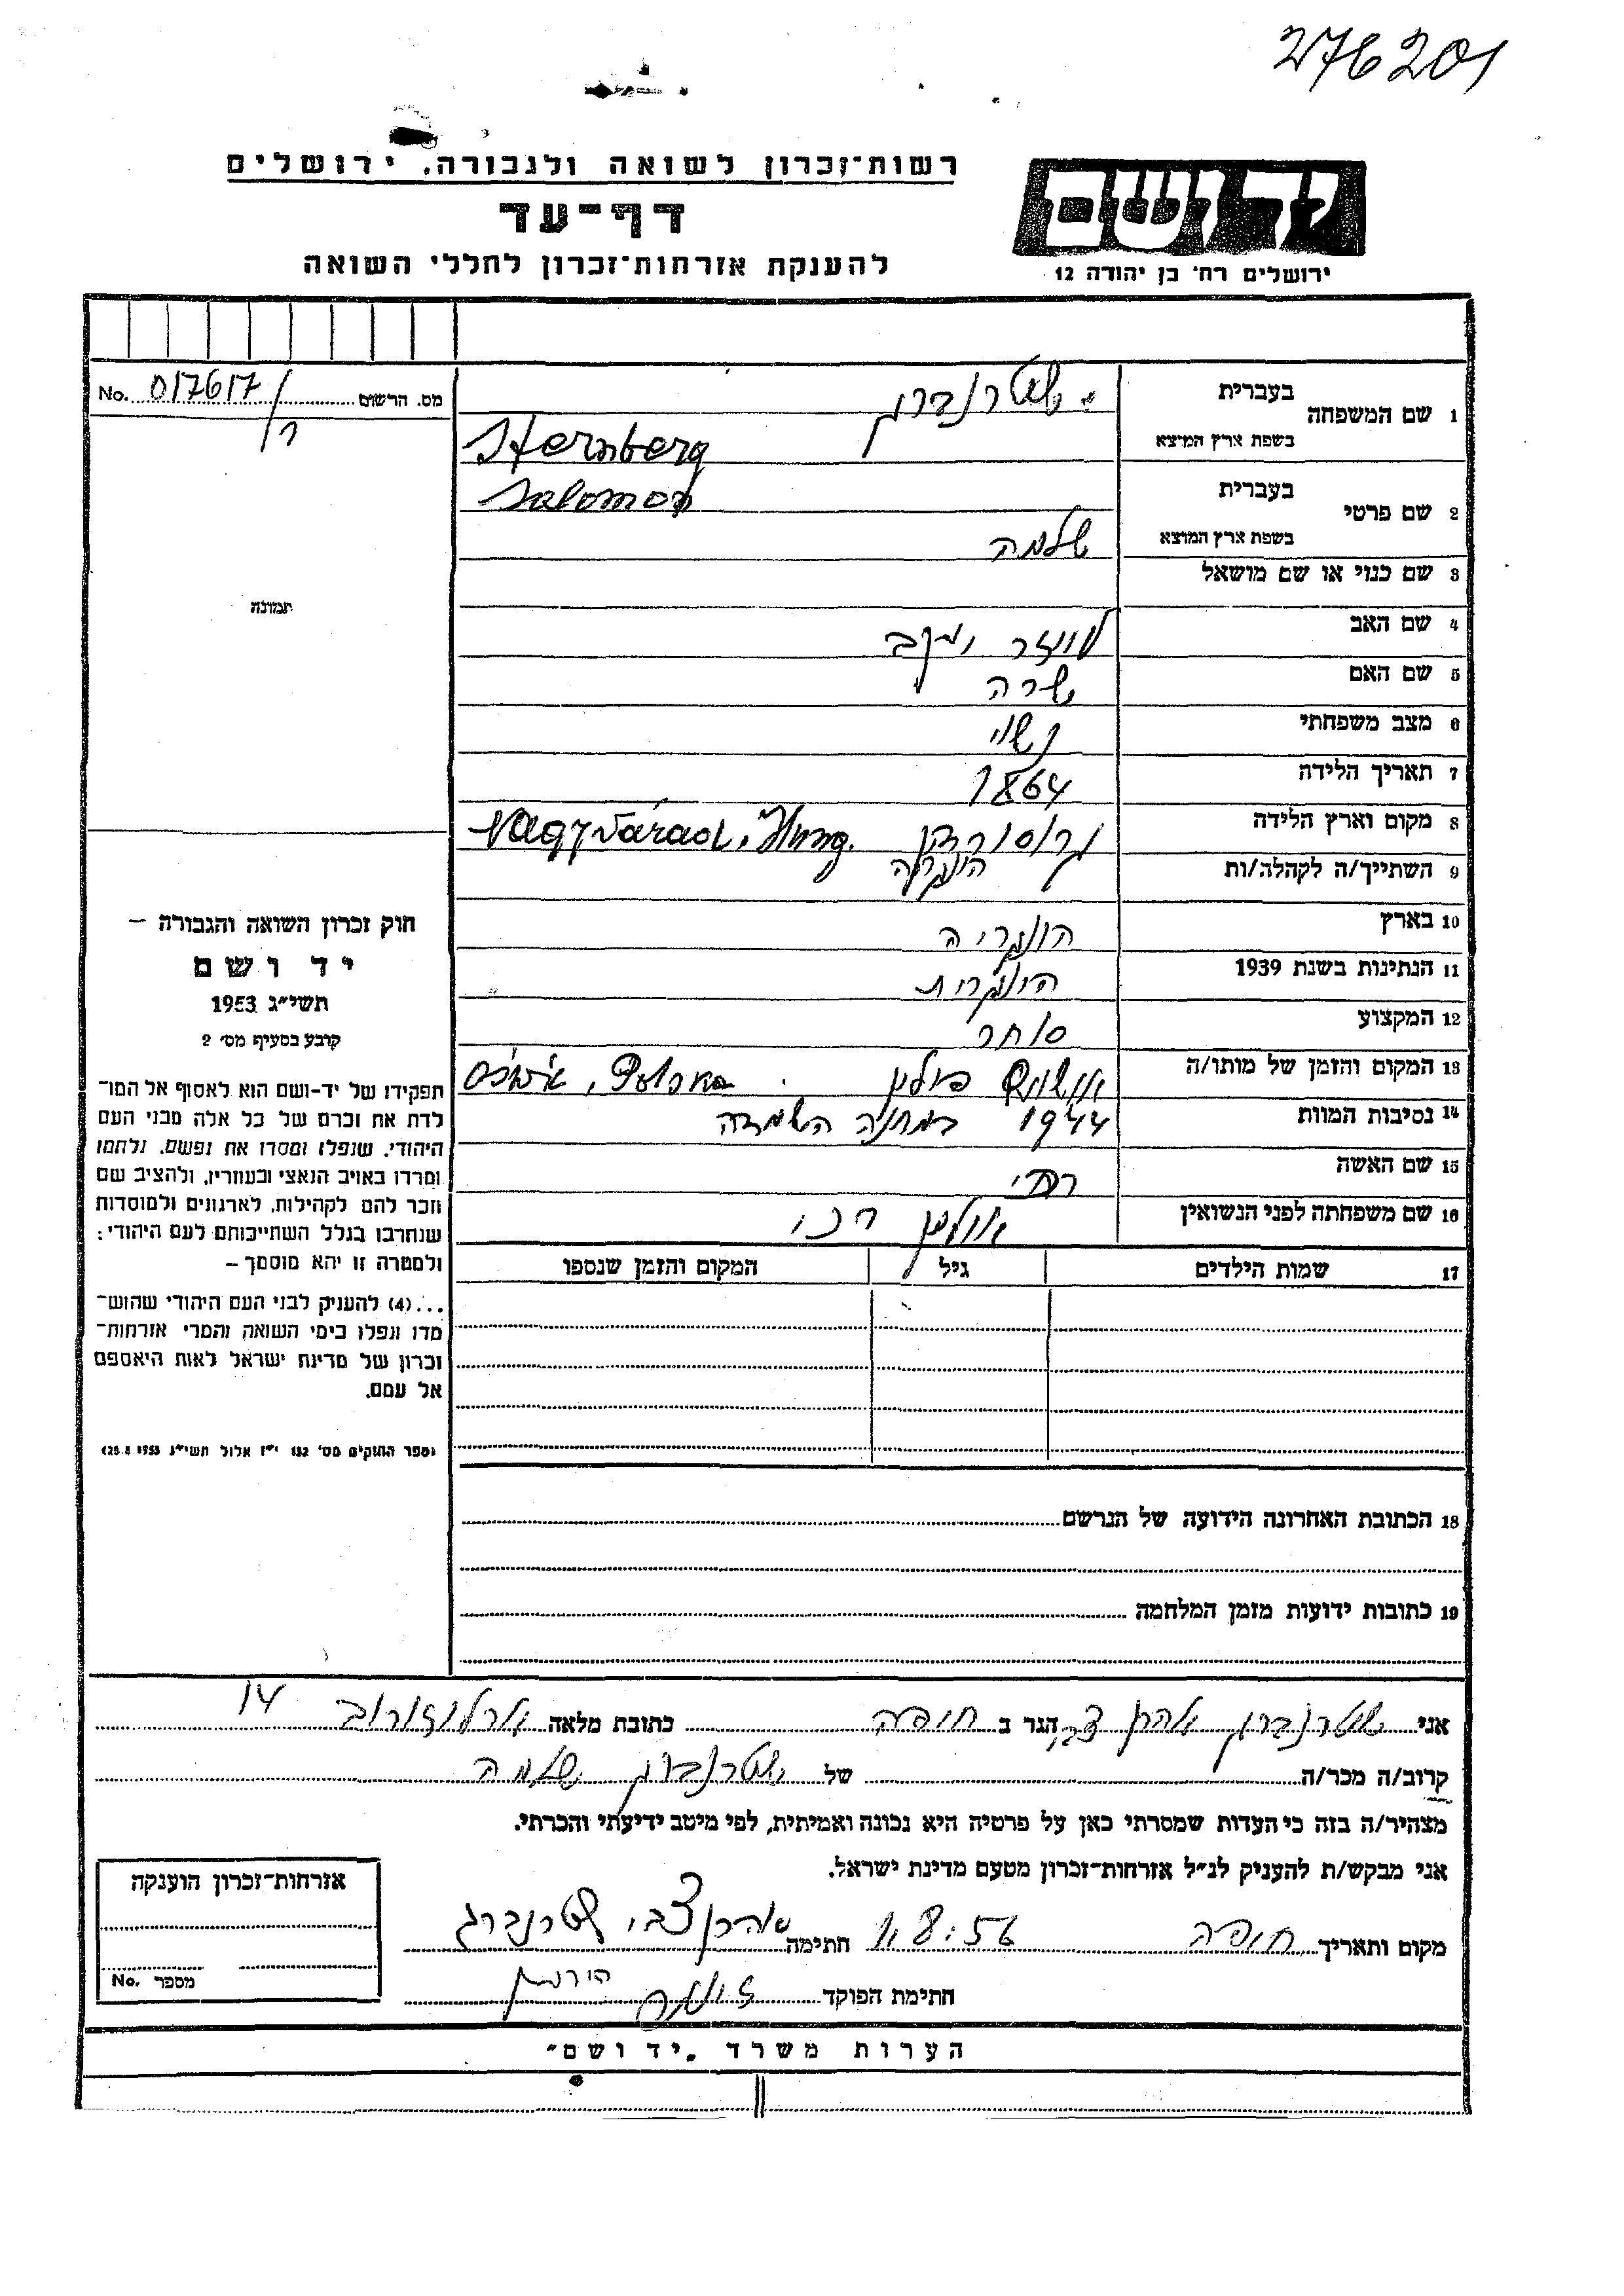 276201
רשות־זכרון לשואה ולגבורה, ירושלים
יד ושם
דף־עד
להענקת אזרחות־זכרון לחללי השואה
ירושלים רח' בן יהודה 12
מס. הרשום 017617/ No.
1 שם המשפחה בעברית שטרנברג
בשפת ארץ המוצא Sternberg
2 שם פרטי בעברית Salomon
בשפת ארץ המוצא שלמה
3 שם כנוי או שם מושאל
תמונה
4 שם האב יעקב
5 שם האם שרה
6 מצב משפחתי נשוי
7 תאריך הלידה 1864
8 מקום וארץ הלידה גרוסורדין Nagyvárad, Hung.
הונגריה
9 השתייך/ה לקהלה/ות
10 בארץ הונגריה
11 הנתינות בשנת 1939 הונגרית
12 המקצוע סוחר
13 המקום והזמן של מותו/ה פולין Polska
14 נסיבות המוות 1944 במחנה השמדה
15 שם האשה
16 שם משפחתה לפני הנשואין
17 שמות הילדים גיל המקום והזמן שנספו
חוק זכרון השואה והגבורה –
יד ושם
תשי״ג 1953
קובע בסעיף מס' 2
תפקידו של יד-ושם הוא לאסוף אל המו־
לדת את זכרם של כל אלה מבני העם
היהודי, שנפלו ומסרו את נפשם, נלחמו
ומרדו באויב הנאצי ובעוזריו, ולהציב שם
וזכר להם לקהילות, לארגונים ולמוסדות
שנחרבו בגלל השתייכותם לעם היהודי;
ולמטרה זו יהא מוסמך –
...(4) להעניק לבני העם היהודי שהוש־
מדו ונפלו בימי השואה והמרי אזרחות־
זכרון של מדינת ישראל לאות היאספם
אל עמם.
(ספר החוקים מס' 132 י״ז אלול תשי״ג 28.8.1953)
18 הכתובת האחרונה הידועה של הנרשם
19 כתובות ידועות מזמן המלחמה
אני שטרנברג אהרן צבי הגר ב חיפה כתובת מלאה ארלוזורוב 14
קרוב/ה מכר/ה של שטרנברג שלמה
מצהיר/ה בזה כי העדות שמסרתי כאן על פרטיה היא נכונה ואמיתית, לפי מיטב ידיעתי והכרתי.
אני מבקש/ת להעניק לנ״ל אזרחות־זכרון מטעם מדינת ישראל.
מקום ותאריך חיפה 1.8.56 חתימה אהרן צבי שטרנברג
חתימת הפוקד
אזרחות־זכרון הוענקה
מספר No.
הערות משרד „יד ושם״